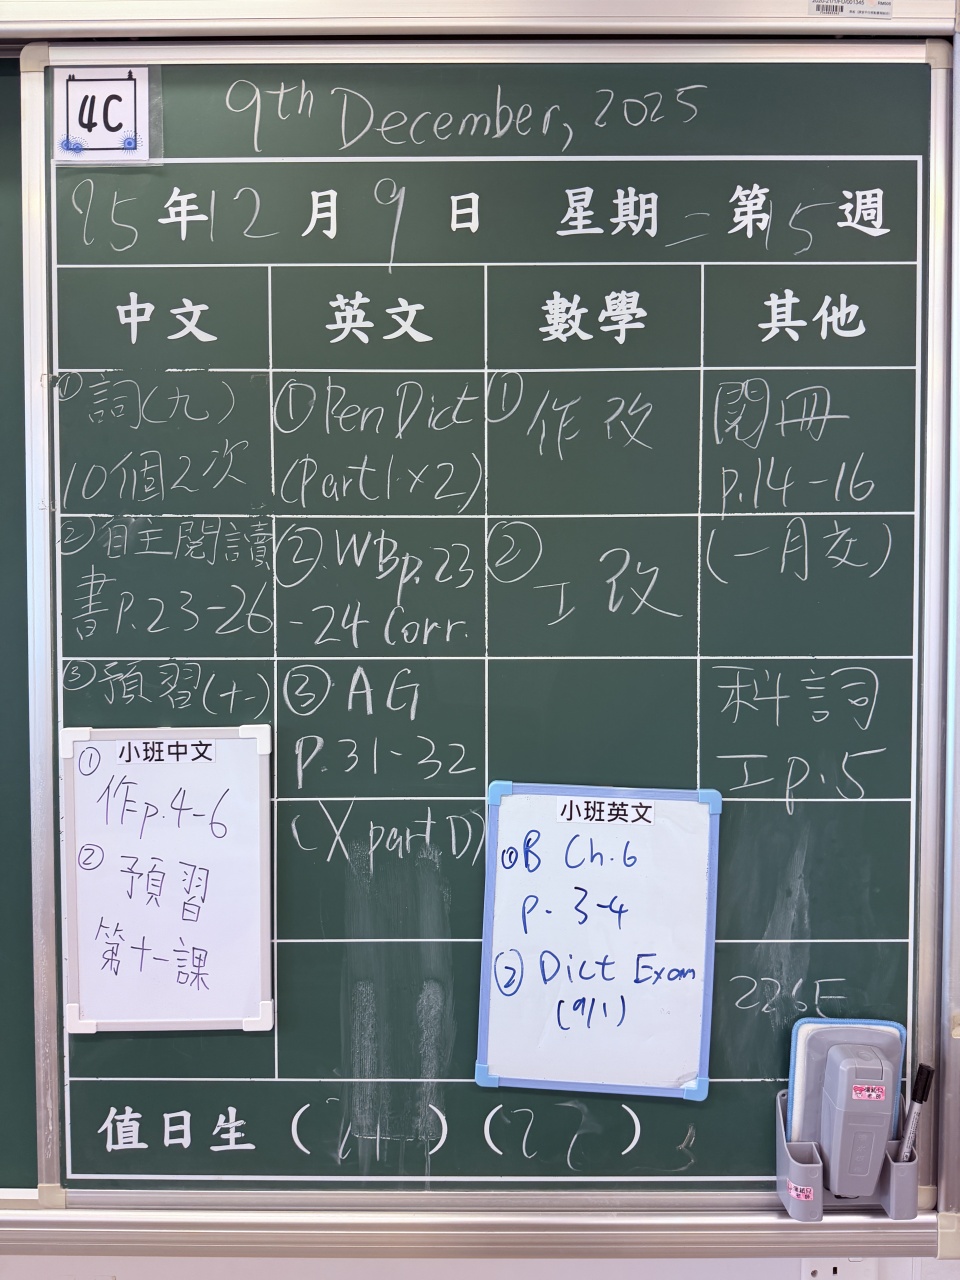 4C
9th December, 2025
25年12月9日 星期二 第15週
中文
英文
數學
其他
①詞(九)
10個2次
②自主閱讀
書P.23-26
③預習(十一)
①Pen Dict
(Part1×2)
②.WBp.23
-24 Corr.
③ AG
P.31-32
(X part D)
①作改
②工改
閱冊
p.14-16
(一月交)
科詞
工p.5
小班中文
①
作p.4-6
② 預習
第十一課
小班英文
①B Ch.6
p. 3-4
② Dict Exam
(9/1)
值日生 ( ) ( )